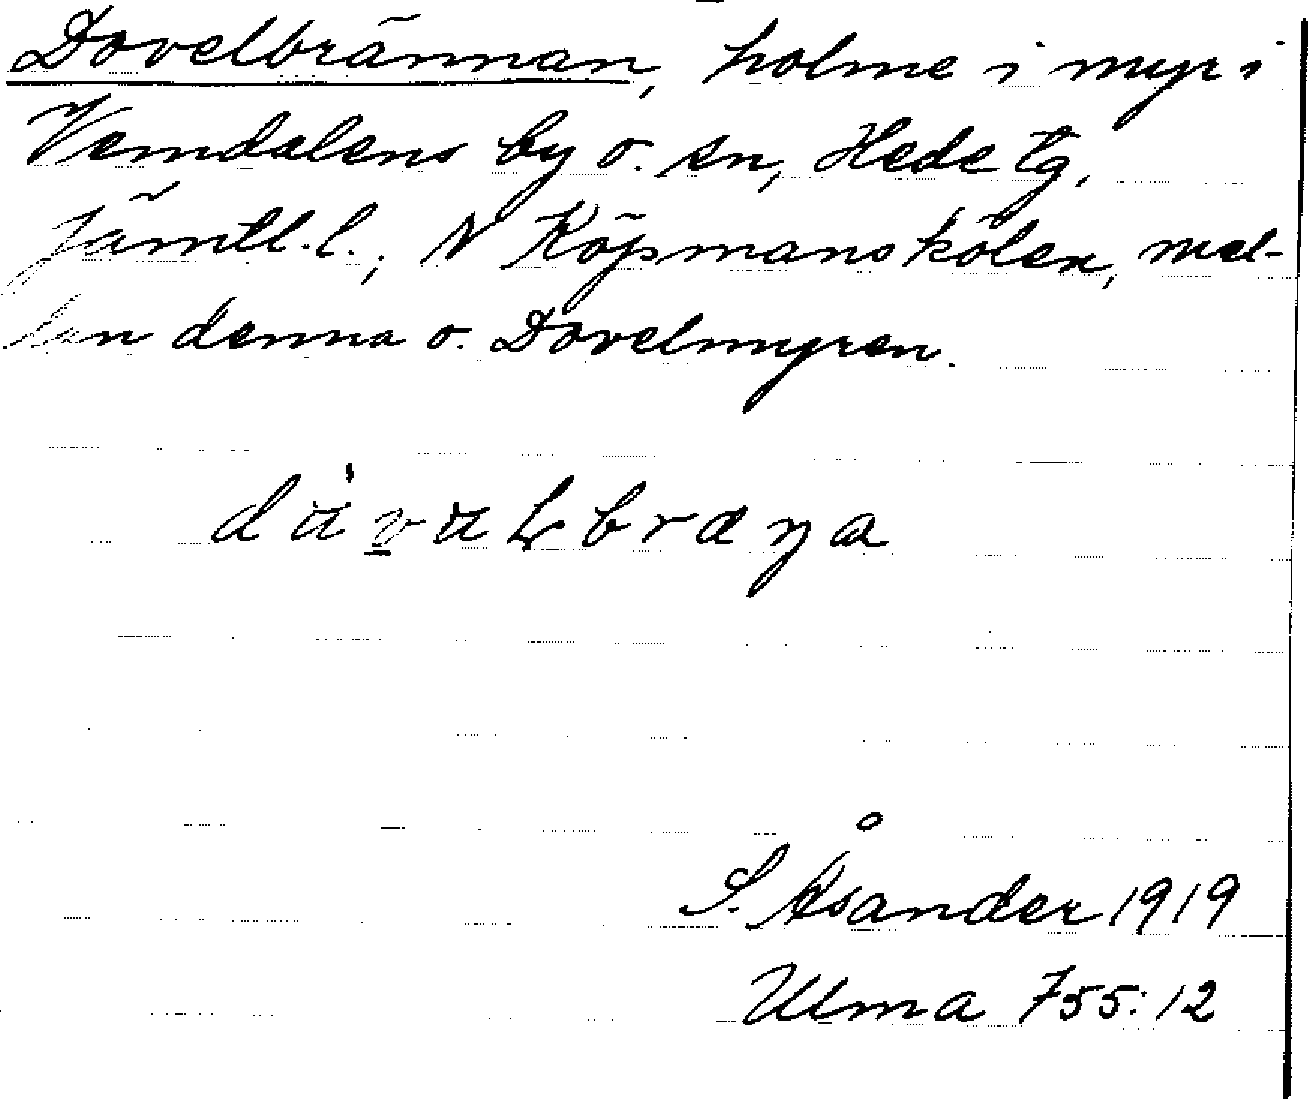 Dovelbrännan, holme i myr i
Vemdalens by o. sn, Hede tg,
Jämtl. l., N Köpmanskölen, mel-
lan denna o. Dovelmyren.
S. Åsander 1919
Ulma 755:12